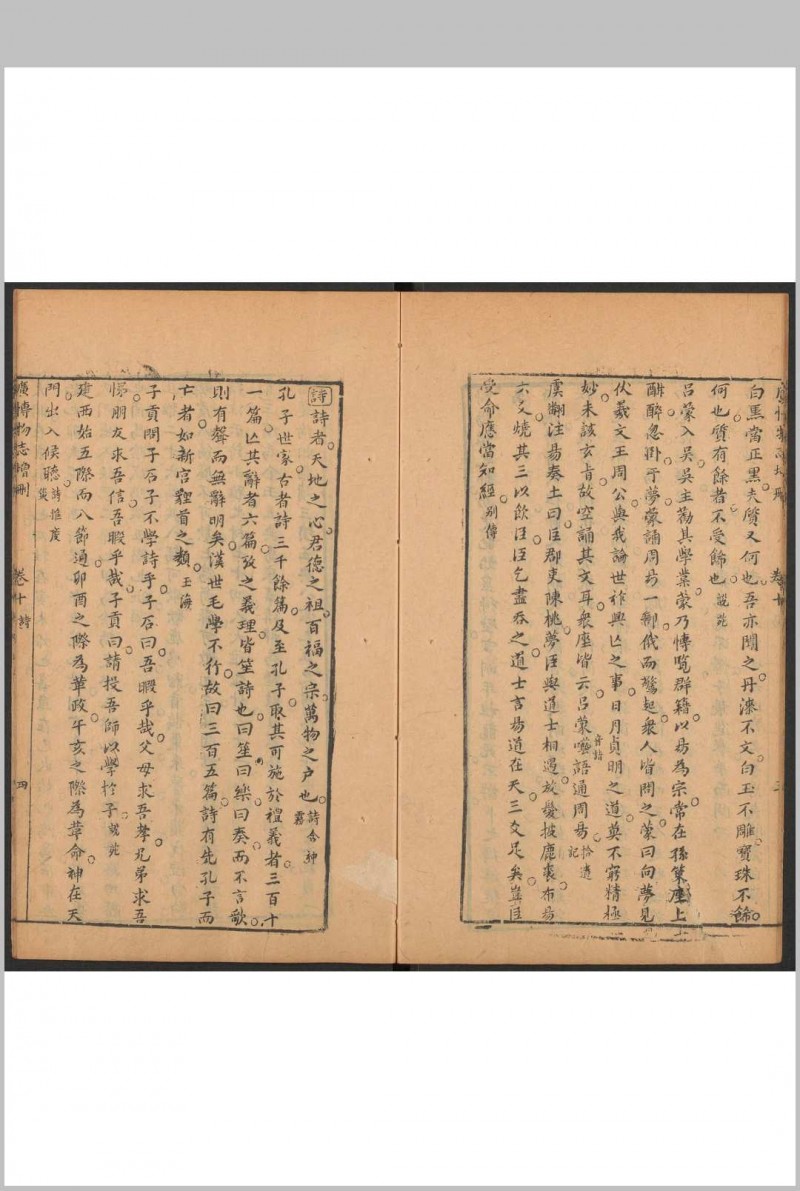 白黑當正黑夫質又何也吾亦聞之丹漆不文白玉不雕寶珠不飾
何也質有餘者不受飾也 說苑
呂蒙入吳吳主勸其學業蒙乃博覽群籍以易為宗常在孫策座上
酣醉忽卧于夢蘉誦周易一部俄而驚起衆人皆問之蒙曰向夢見
伏羲文王周公與我論世祚興亡之事日月貞明之道莫不窮精極
妙未該玄旨故空誦其文耳衆座皆云呂蒙囈語通周易 拾遺記
虞翻注易奏上曰臣郡吏陳桃夢臣與道士相遇放髮披鹿裘布易
六爻燒其三以飲臣臣乞盡吞之道士言易道在天三爻足矣豈臣
受命應當知經 別傳
廣博物志增刪 卷十詩 四
詩 詩者天地之心君德之祖百福之宗萬物之户也 詩含神霧
孔子世家古者詩三千餘篇及至孔子取其可施於禮義者三百十
一篇亡其辭者六篇攷之義理皆笙詩也曰笙曰樂曰奏而不言歌
則有聲而無辭明矣漢世毛學不行故曰三百五篇詩有先孔子而
亡者如新宮貍首之類 玉海
子貢問子石子不學詩乎子石曰吾暇乎哉父母求吾孝兄弟求吾
悌朋友求吾信吾暇乎哉子貢曰請投吾師以學於子 說苑
建酉始五際而八節通卯酉之際為革政午亥之際為革命神在天
門出入候聽 詩推度災